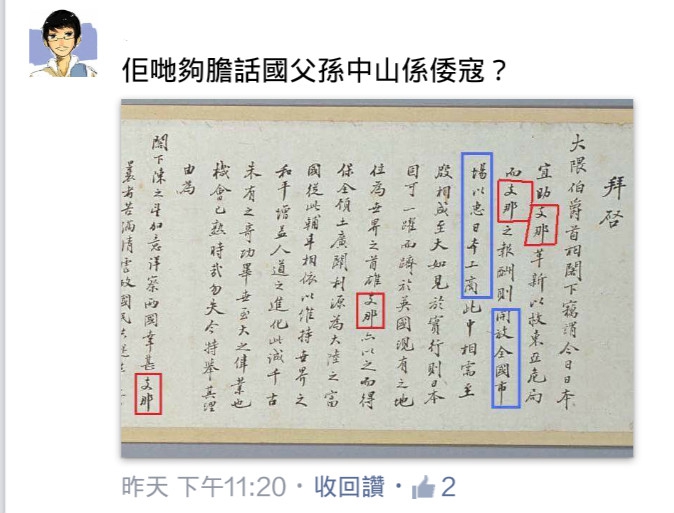 佢哋夠膽話國父孫中山係倭寇？
拜啓
大隈伯爵首相閣下竊謂今日日本
宜助支那革新以救東亞危局
而支那之報酬則開放全國市
場以惠日本工商此中相需至
殷相成至大如見於實行則日本
固可一躍而躋於英國現有之地
位為世界之首雄支那亦以之而得
保全領土廣闢利源為大陸之富
國從此輔車相依以維持世界之
和平增益人道之進化此誠千古
未有之奇功畢世至大之偉業也
機會已熟時哉勿失今特舉其理
由為
閣下陳之望加意詳察兩國幸甚支那
曩者苦滿清虐政國民共
昨天 下午11:20・收回讚・2